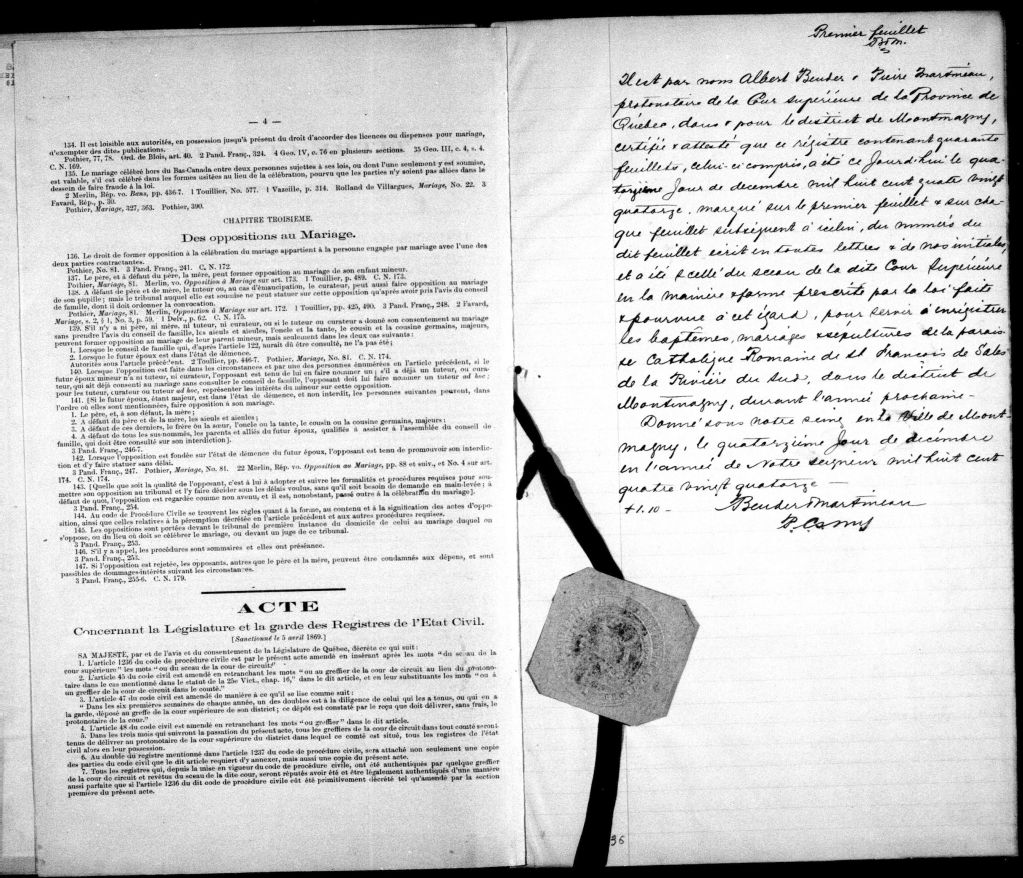 — 4 —
134. Il est loisible aux autorités, en possession jusqu'à présent du droit d'accorder des licences ou dispenses pour mariage,
d'exempter des dites publications.
Pothier, 77, 78. Ord. de Blois, art. 40. 2 Pand. Franç., 324. 4 Geo. IV, c. 76 en plusieurs sections. 35 Geo. III, c. 4, s. 4.
C. N. 169.
135. Le mariage célébré hors du Bas-Canada entre deux personnes sujettes à ses lois, ou dont l'une seulement y est soumise,
est valable, s'il est célébré dans les formes usitées au lieu de la célébration, pourvu que les parties n'y soient pas allées dans le
dessein de faire fraude à la loi.
2 Merlin, Rép. vo. Bans, pp. 436-7. 1 Touillier, No. 577. 1 Vazeille, p. 314. Rolland de Villargues, Mariage, No. 22. 3
Favard, Rép., p. 30.
Pothier, Mariage, 327, 363. Pothier, 390.
CHAPITRE TROISIEME.
Des oppositions au Mariage.
136. Le droit de former opposition à la célébration du mariage appartient à la personne engagée par mariage avec l'une des
deux parties contractantes.
Pothier, No. 81. 3 Pand. Franç., 241. C. N. 172.
137. Le père, et à défaut du père, la mère, peut former opposition au mariage de son enfant mineur.
Pothier, Mariage, 81. Merlin, vo. Opposition à Mariage sur art. 173. 1 Touillier, p. 489. C. N. 173.
138. A défaut de père et de mère, le tuteur ou, au cas d'émancipation, le curateur, peut aussi faire opposition au mariage
de son pupille; mais le tribunal auquel elle est soumise ne peut statuer sur cette opposition qu'après avoir pris l'avis du conseil
de famille, dont il doit ordonner la convocation.
Pothier, Mariage, 81. Merlin, Opposition à Mariage sur art. 172. 1 Touillier, pp. 425, 490. 3 Pand. Franç., 248. 2 Favard,
Mariage, s. 2, § 1, No. 3, p. 59. 1 Delv., p. 62. C. N. 175.
139. S'il n'y a ni père, ni mère, ni tuteur, ni curateur, ou si le tuteur ou curateur a donné son consentement au mariage
sans prendre l'avis du conseil de famille, les aïeuls et aïeules, l'oncle et la tante, le cousin et la cousine germains, majeurs,
peuvent former opposition au mariage de leur parent mineur, mais seulement dans les deux cas suivants:
1. Lorsque le conseil de famille qui, d'après l'article 122, aurait dû être consulté, ne l'a pas été;
2. Lorsque le futur époux est dans l'état de démence.
Autorités sous l'article précédent. 2 Touillier, pp. 446-7. Pothier, Mariage, No. 81. C. N. 174.
140. Lorsque l'opposition est faite dans les circonstances et par une des personnes énumérées en l'article précédent, si le
futur époux mineur n'a ni tuteur, ni curateur, l'opposant est tenu de lui en faire nommer un; s'il a déjà un tuteur, ou cura-
teur, qui ait déjà consenti au mariage sans consulter le conseil de famille, l'opposant doit lui faire nommer un tuteur ad hoc;
pour les tuteur, curateur ou tuteur ad hoc, représenter les intérêts du mineur sur cette opposition.
141. [Si le futur époux, étant majeur, est dans l'état de démence, et non interdit, les personnes suivantes peuvent, dans
l'ordre où elles sont mentionnées, faire opposition à son mariage.
1. Le père, et, à son défaut, la mère;
2. A défaut du père et de la mère, les aïeuls et aïeules;
3. A défaut de ces derniers, le frère ou la sœur, l'oncle ou la tante, le cousin ou la cousine germains, majeurs:
4. A défaut de tous les sus-nommés, les parents et alliés du futur époux, qualifiés à assister à l'assemblée du conseil de
famille, qui doit être consulté sur son interdiction].
3 Pand. Franç., 246-7.
142. Lorsque l'opposition est fondée sur l'état de démence du futur époux, l'opposant est tenu de promouvoir son interdic-
tion et d'y faire statuer sans délai.
3 Pand. Franç., 247. Pothier, Mariage, No. 81. 22 Merlin, Rép. vo. Opposition au Mariage, pp. 88 et suiv., et No. 4 sur art.
174. C. N. 174.
143. [Quelle que soit la qualité de l'opposant, c'est à lui à adopter et suivre les formalités et procédures requises pour sou-
mettre son opposition au tribunal et l'y faire décider sous les délais voulus, sans qu'il soit besoin de demande en main-levée; à
défaut de quoi, l'opposition est regardée comme non avenu, et il est, nonobstant, passé outre à la célébration du mariage].
3 Pand. Franç., 254.
144. Au code de Procédure Civile se trouvent les règles quant à la forme, au contenu et à la signification des actes d'oppo-
sition, ainsi que celles relatives à la péremption décrétée en l'article précédent et aux autres procédures requises.
145. Les oppositions sont portées devant le tribunal de première instance du domicile de celui au mariage duquel on
s'oppose, ou du lieu où doit se célébrer le mariage, ou devant un juge de ce tribunal.
3 Pand. Franç., 253.
146. S'il y a appel, les procédures sont sommaires et elles ont préséance.
3 Pand. Franç., 253.
147. Si l'opposition est rejetée, les opposants, autres que le père et la mère, peuvent être condamnés aux dépens, et sont
passibles de dommages-intérêts suivant les circonstances.
3 Pand. Franç., 255-6. C. N. 179.
ACTE
Concernant la Législature et la garde des Registres de l'Etat Civil.
[Sanctionné le 5 avril 1869.]
SA MAJESTÉ, par et de l'avis et du consentement de la Législature de Québec, décrète ce qui suit:
1. L'article 1236 du code de procédure civile est par le présent acte amendé en insérant après les mots "du sceau de la
cour supérieure" les mots "ou du sceau de la cour de circuit."
2. L'article 45 du code civil est amendé en retranchant les mots "ou au greffier de la cour de circuit au lieu du protono-
taire dans le cas mentionné dans le statut de la 25e Vict., chap. 16," dans le dit article, et en leur substituants les mots "ou à
un greffier de la cour de circuit dans le comté."
3. L'article 47 du code civil est amendé de manière à ce qu'il se lise comme suit:
" Dans les six premières semaines de chaque année, un des doubles est à la diligence de celui qui les a tenus, ou qui en a
la garde, déposé au greffe de la cour supérieure de son district; ce dépôt est constaté par le reçu que doit délivrer, sans frais, le
protonotaire de la cour."
4. L'article 48 du code civil est amendé en retranchant les mots "ou greffier" dans le dit article.
5. Dans les trois mois qui suivront la passation du présent acte, tous les greffiers de la cour de circuit dans tout comté seront
tenus de délivrer au protonotaire de la cour supérieure du district dans lequel ce comté est situé, tous les registres de l'état
civil alors en leur possession.
6. Au double du registre mentionné dans l'article 1237 du code de procédure civile, sera attaché non seulement une copie
des parties du code civil que le dit article requiert d'y annexer, mais aussi une copie du présent acte.
7. Tous les registres qui, depuis la mise en vigueur du code de procédure civile, ont été authentiqués par quelque greffier
de la cour de circuit et revêtus du sceau de la dite cour, seront réputés avoir été et être légalement authentiqués d'une manière
aussi parfaite que si l'article 1236 du dit code de procédure civile eût été primitivement décrété tel qu'amendé par la section
première du présent acte.
Premier feuillet
B&M.
Il est par nous Albert Bender & Pierre Martineau,
protonotaire de la Cour supérieure de la Province de
Québec, dans & pour le district de Montmagny,
certifié & attesté que ce régistre contenant quarante
feuillets, celui-ci compris, a été ce Jourd'hui le qua-
torzième Jour de decembre mil huit cent quatre vingt
quatorze, marqué sur le premier feuillet & sur cha-
que feuillet subséquent à icelui, du numéro du
dit feuillet écrit en toutes lettres & de nos initiales
et a été scellé du sceau de la dite Cour Supérieure
en la manière & forme prescrite par la loi faite
& pourvue à cet égard, pour servir à enrégistrer
les baptêmes, mariages & sépultures de la parois-
se Catholique Romaine de St François de Sales
de la Rivière du Sud, dans le district de
Montmagny, durant l'année prochaine-
Donné sous notre seing en la Ville de Mont-
magny, le quatorzième Jour de décembre
en l'année de Notre Seigneur mil huit cent
quatre vingt quatorze —
Bender & Martineau
$1.10 —
P. C. S. M.
36